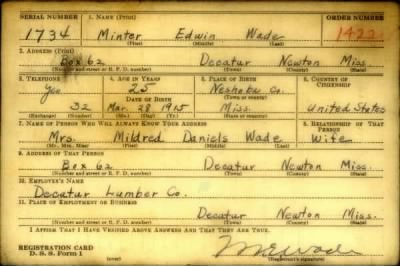 SERIAL NUMBER 1. NAME (Print) ORDER NUMBER
1734 Minter Edwin Wade 1422
(First) (Middle) (Last)
2. ADDRESS (Print)
Box 62 Decatur Newton Miss.
(Number and street or R. F. D. number) (Town) (County) (State)
3. TELEPHONE 4. AGE IN YEARS 5. PLACE OF BIRTH 6. COUNTRY OF CITIZENSHIP
Yes 25 Neshoba Co.
(Town or county)
DATE OF BIRTH
32 Mar. 28 1915 Miss. United States
(Exchange) (Number) (Mo.) (Day) (Yr.) (State or country)
7. NAME OF PERSON WHO WILL ALWAYS KNOW YOUR ADDRESS 8. RELATIONSHIP OF THAT PERSON
Mrs. Mildred Daniels Wade Wife
(Mr., Mrs., Miss) (First) (Middle) (Last)
9. ADDRESS OF THAT PERSON
Box 62 Decatur Newton Miss.
(Number and street or R. F. D. number) (Town) (County) (State)
10. EMPLOYER'S NAME
Decatur Lumber Co.
11. PLACE OF EMPLOYMENT OR BUSINESS
Decatur Newton Miss.
(Number and street or R. F. D. number) (Town) (County) (State)
I AFFIRM THAT I HAVE VERIFIED ABOVE ANSWERS AND THAT THEY ARE TRUE.
REGISTRATION CARD
D. S. S. Form 1 M E Wade
(Registrant's signature)